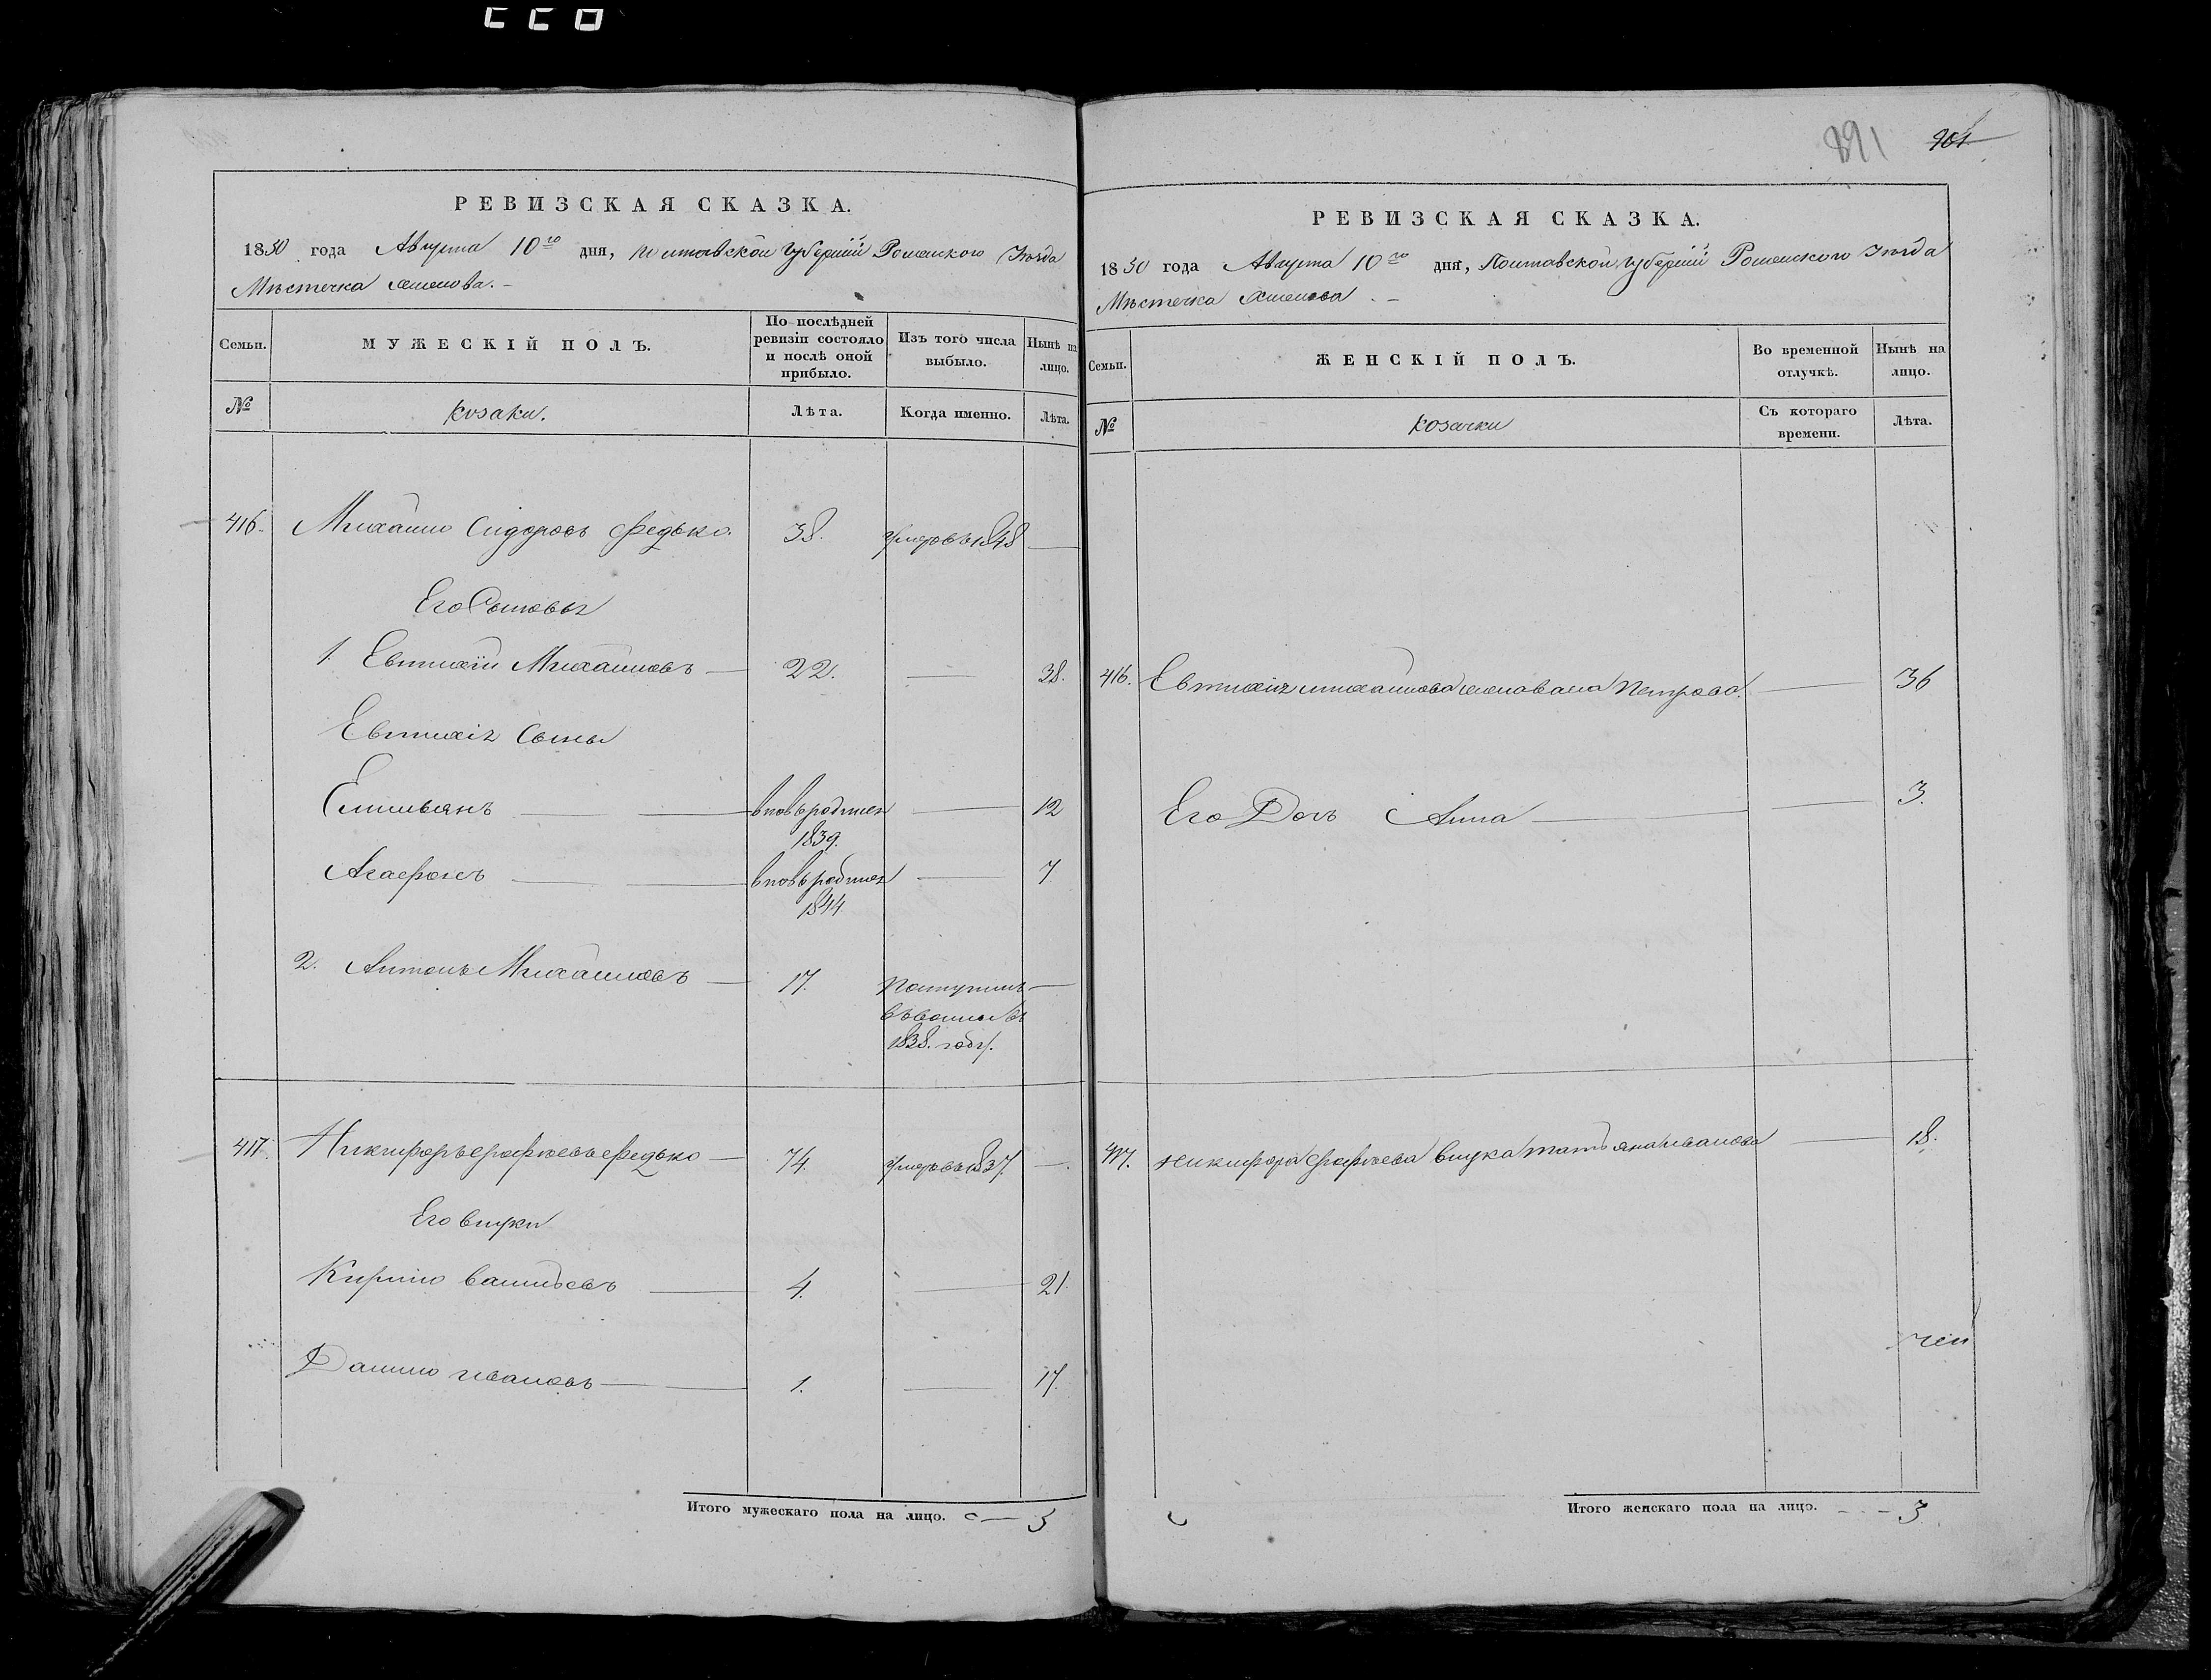 РЕВИЗСКАЯ СКАЗКА.
1850 года Августа 10го дня, Полтавской Губернiй Роменского Уѣзда
Мѣстечка
Семьи. МУЖЕСКІЙ ПОЛЪ. По послѣдней ревизіи состояло и послѣ оной прибыло. Изъ того числа выбыло. Нынѣ на лицо.
№ козаки. Лѣта. Когда именно. Лѣта.
416. Михайло Сидоровъ Федько. 38. умеръ въ 1848 —
Его Сыновья
1. Евтихiй Михайловъ — 22. — 38.
Евтихiя Сыны
Емильянъ — вновь родился 1839. — 12
Агафонъ — вновь родился 1844 — 7
2. Антонъ Михайловъ — 17. Поступилъ —
1838. году.
417. Никифоръ Ерофѣевъ Федько — 74. умеръ въ 1837. —
Его внуки
Кирило Васильевъ — 4. — 21.
Данило Ивановъ — 1. — 17.
Итого мужескаго пола на лицо. — 5
891 901
РЕВИЗСКАЯ СКАЗКА.
1850 года Августа 10го дня, Полтавской Губернiй Роменского Уѣзда
Мѣстечка
Семьи. ЖЕНСКІЙ ПОЛЪ. Во временной отлучкѣ. Нынѣ на лицо.
№ козачки Съ котораго времени. Лѣта.
416. Евтихiя Михайлова жена Петрова. — 36
Его Дочь Анна — 3.
417. Никифора Ерофѣева внука Татьяна Иванова — 18.
Итого женскаго пола на лицо. - - - 3.